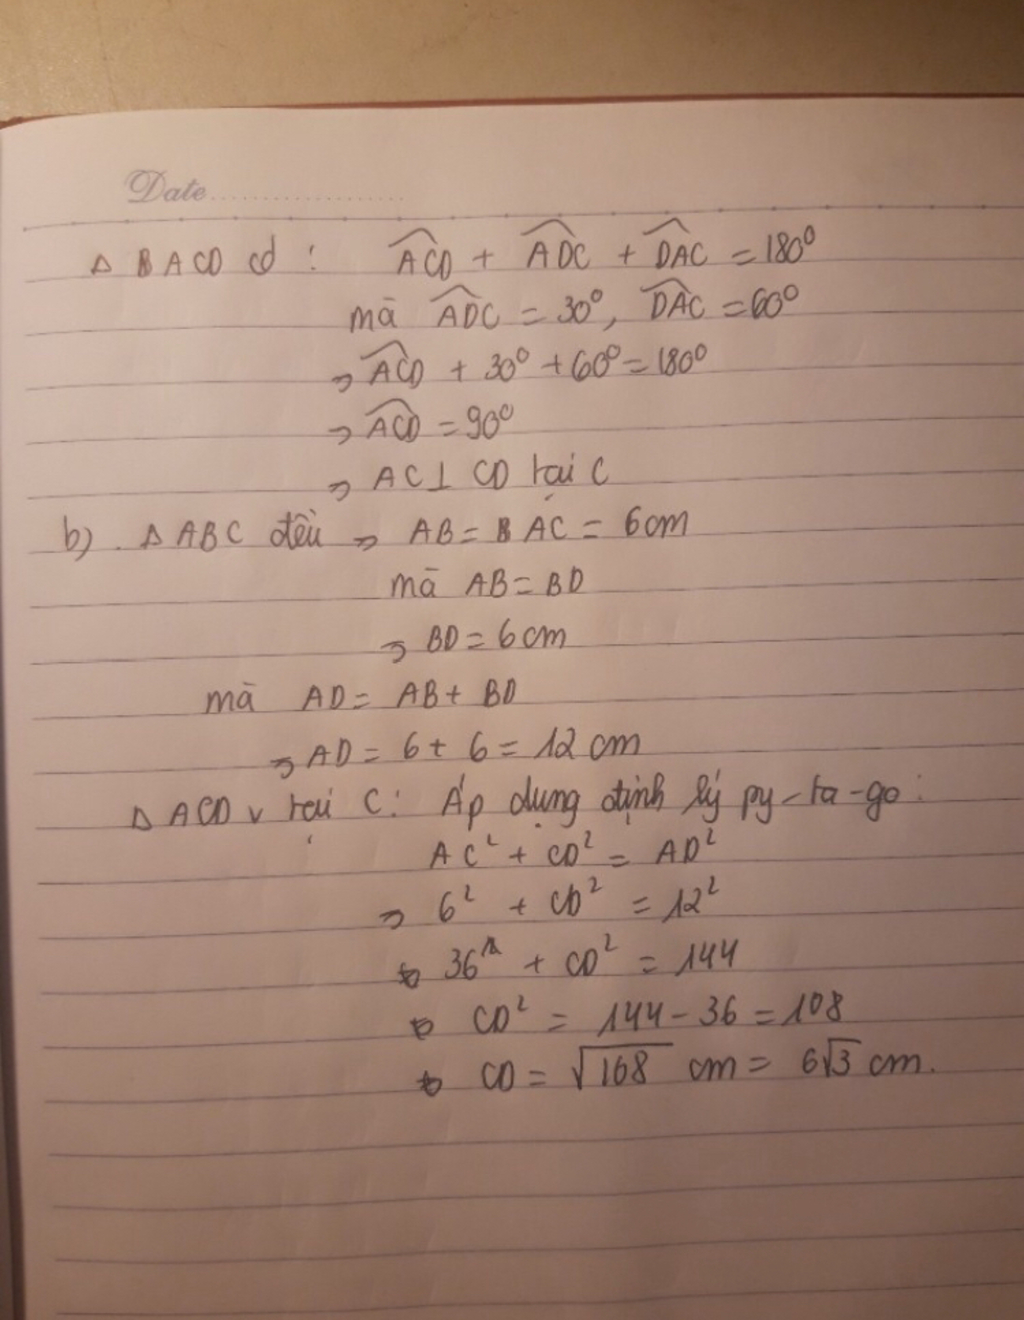 Date
Δ BACD có : ∠ACD + ∠ADC + ∠DAC = 180⁰
mà ∠ADC = 30⁰, ∠DAC = 60⁰
⇒ ∠ACD + 30⁰ + 60⁰ = 180⁰
⇒ ∠ACD = 90⁰
⇒ AC ⊥ CD tại C
b) . Δ ABC đều ⇒ AB = B AC = 6cm
mà AB = BD
⇒ BD = 6cm
mà AD = AB + BD
⇒ AD = 6 + 6 = 12 cm
Δ ACD v tại C : Áp dụng định lý py-ta-go :
AC² + CD² = AD²
⇒ 6² + CD² = 12²
36 + CD² = 144
CD² = 144 - 36 = 108
CD = √108 cm = 6√3 cm.